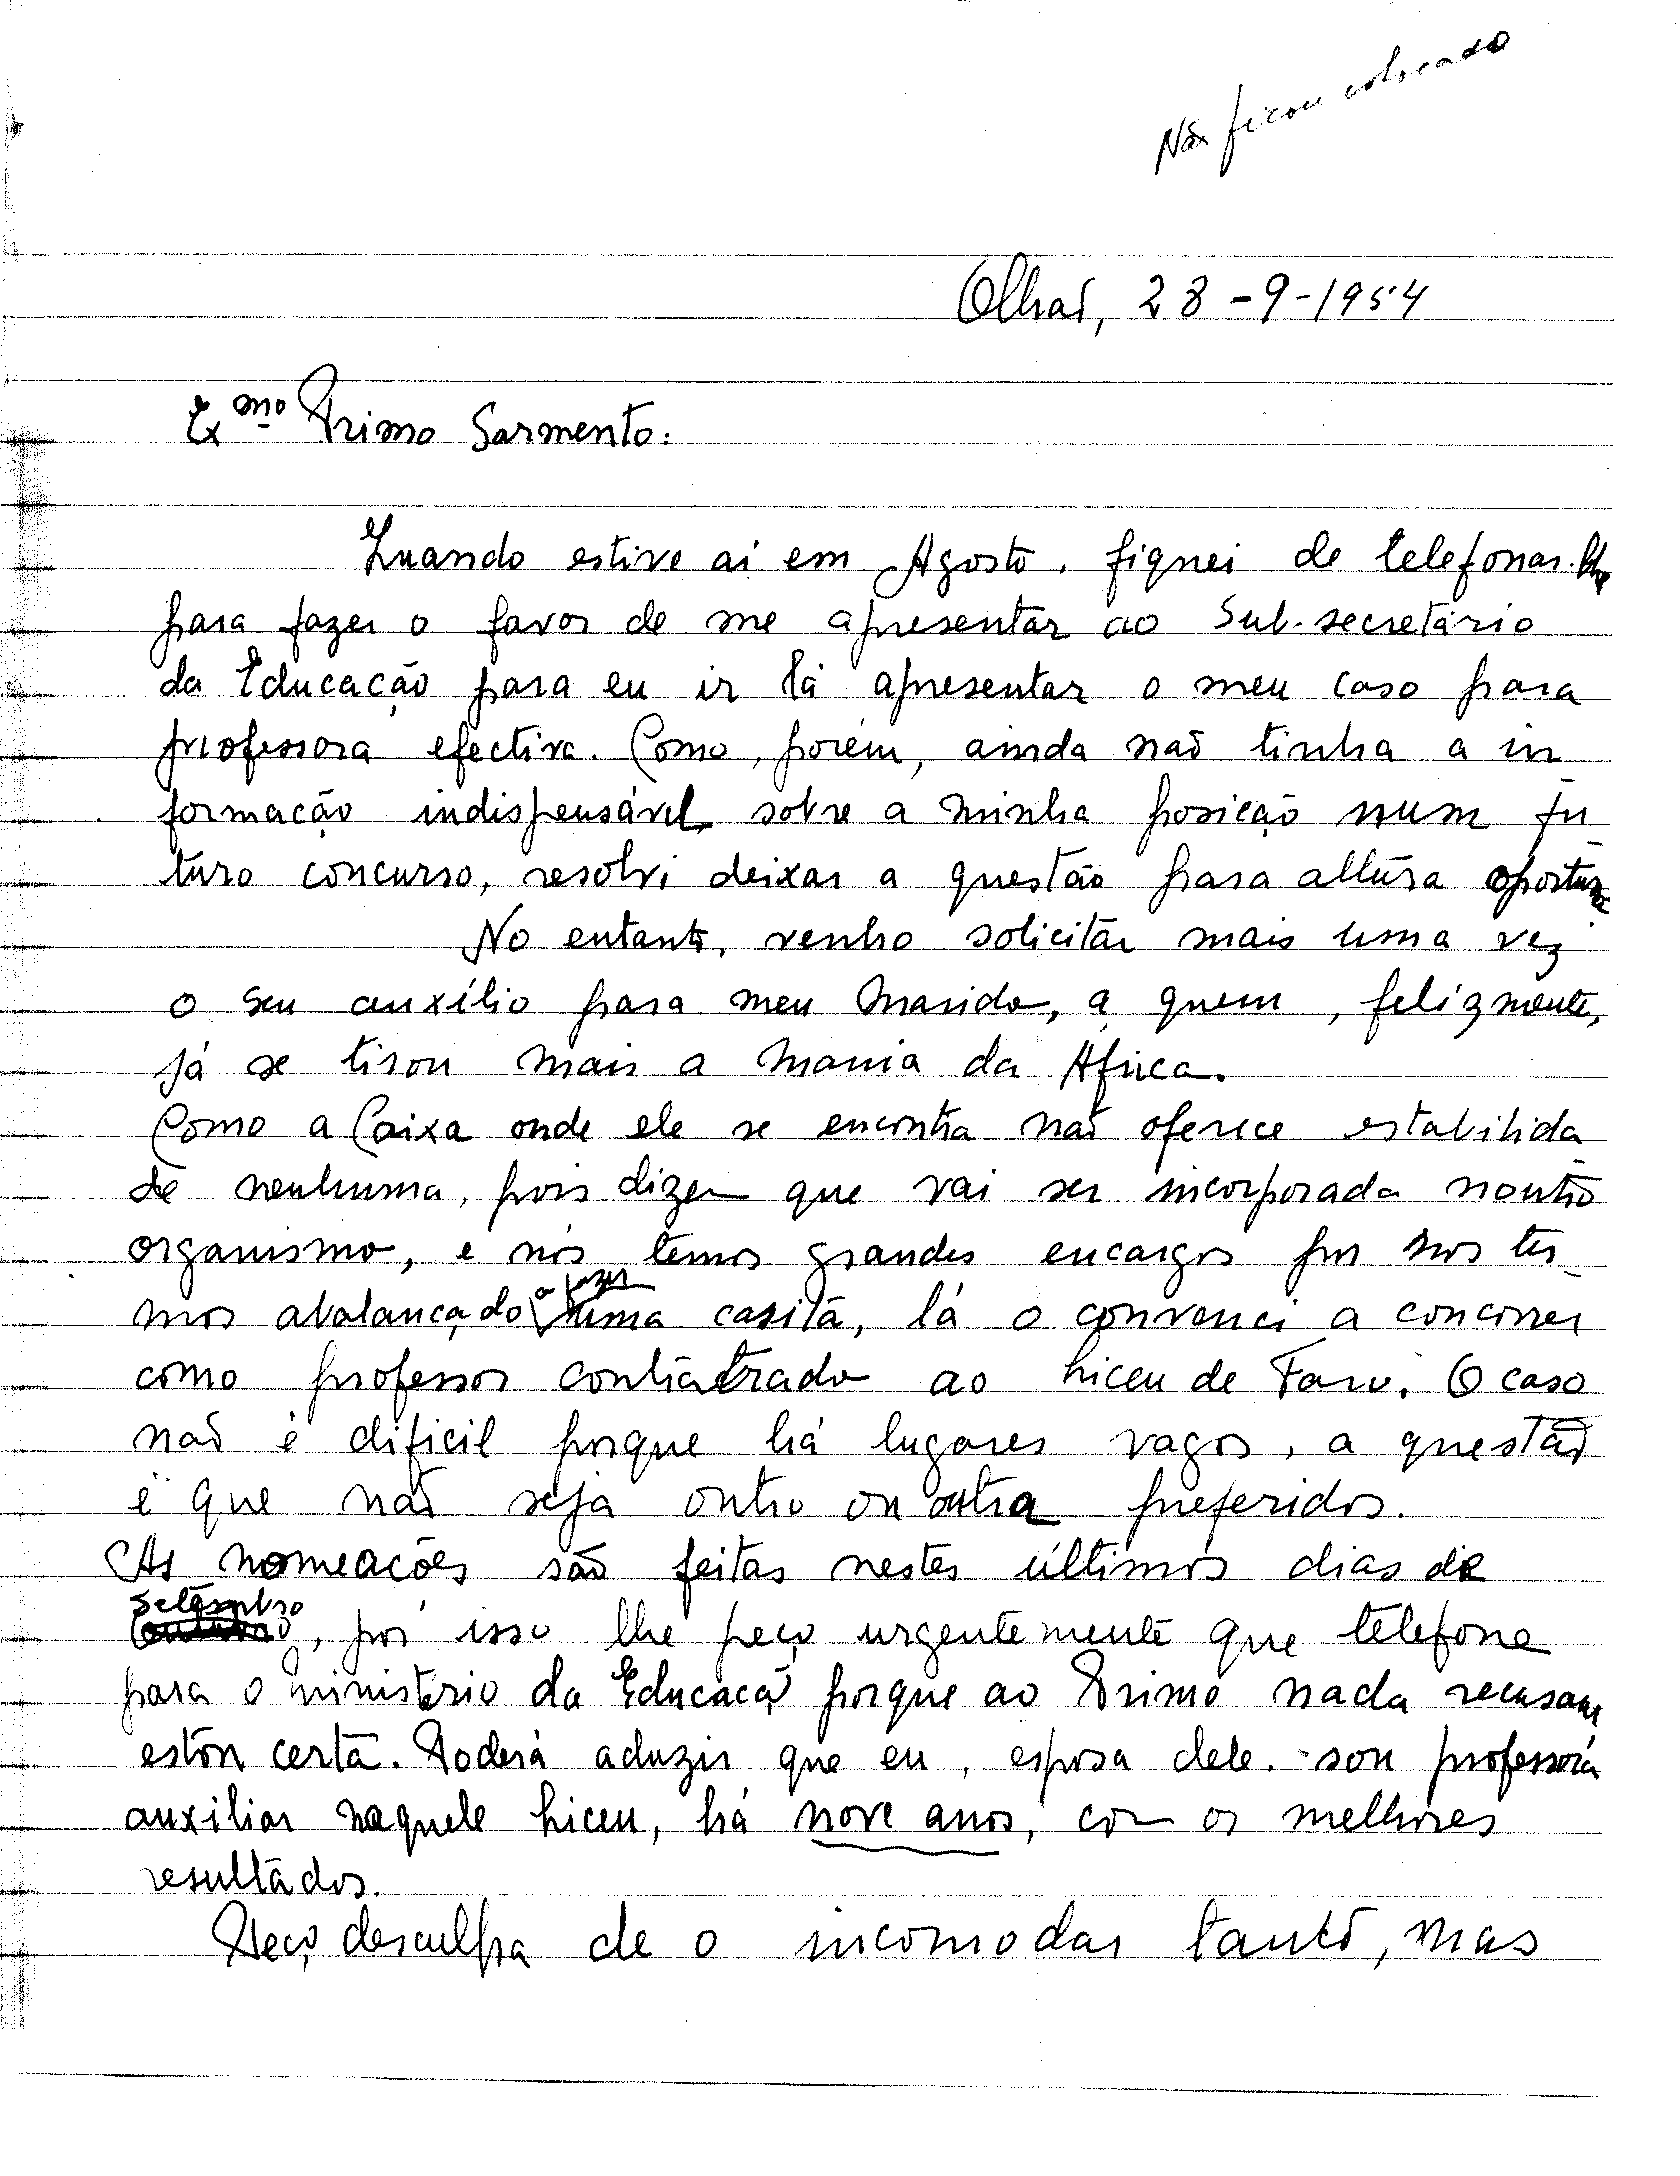 Não ficou colocado
Olhão, 28-9-1954
Exmo Primo Sarmento:
Quando estive aí em Agosto, fiquei de telefonar-lhe
para fazer o favor de me apresentar ao Sub-secretário
da Educação para eu ir lá apresentar o meu caso para
professora efectiva. Como, porém, ainda não tinha a in
formação indispensável sobre a minha posição num fu
turo concurso, resolvi deixar a questão para altura oportuna
No entanto, venho solicitar mais uma vez
o seu auxílio para meu Marido, a quem, felizmente,
já se tirou mais a mania da Africa.
Como a Caixa onde ele se encontra não oferece estabilida
de nenhuma, pois dizem que vai ser incorporada noutro
organismo, e nós temos grandes encargos por nos ter
mos abalançado a fazer uma casita, lá o convenci a concorrer
como professor contratado ao Liceu de Faro. O caso
não é difícil porque há lugares vagos, a questão
é que não seja outro ou outra preferidos.
As nomeações são feitas nestes últimos dias de
Setembro, por isso lhe peço urgentemente que telefone
para o ministério da Educação porque ao Primo nada recusam
estou certa. Poderá aduzir que eu, esposa dele, sou professora
auxiliar naquele Liceu, há nove anos, com os melhores
resultados.
Peço desculpa de o incomodar tanto, mas